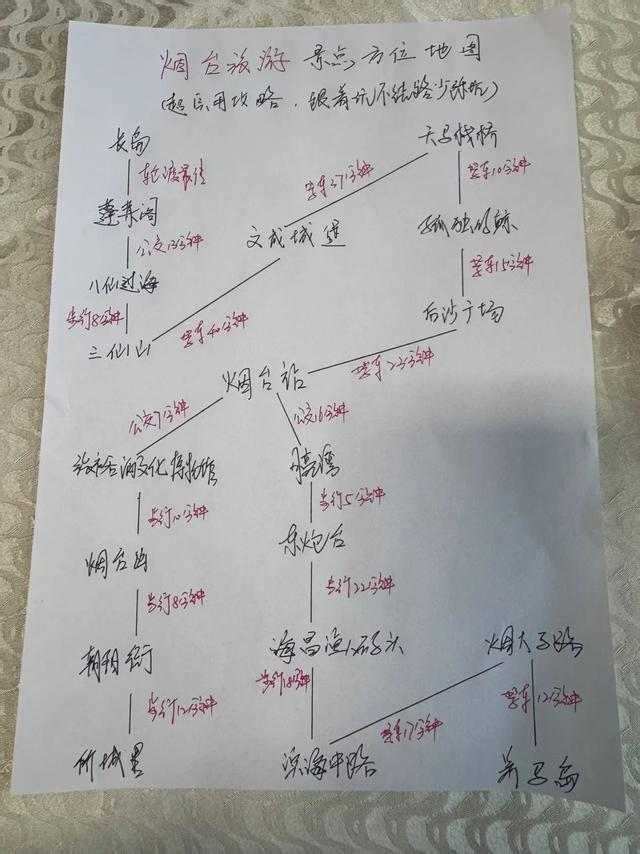 烟台旅游景点方位地图
(超实用攻略，跟着玩不绕路少踩坑)
长岛
天马栈桥
轮渡最佳
驾车37分钟
驾车10分钟
蓬莱阁
文成城堡
孤独的鲸
公交13分钟
驾车15分钟
八仙过海
步行8分钟
后沙广场
三仙山
驾车40分钟
烟台站
驾车23分钟
公交7分钟
公交16分钟
张裕酒文化博物馆
月亮湾
步行10分钟
步行5分钟
烟台山
东炮台
步行8分钟
步行22分钟
朝阳街
海昌渔人码头
烟大路
步行12分钟
步行18分钟
驾车17分钟
驾车12分钟
所城里
滨海中路
养马岛